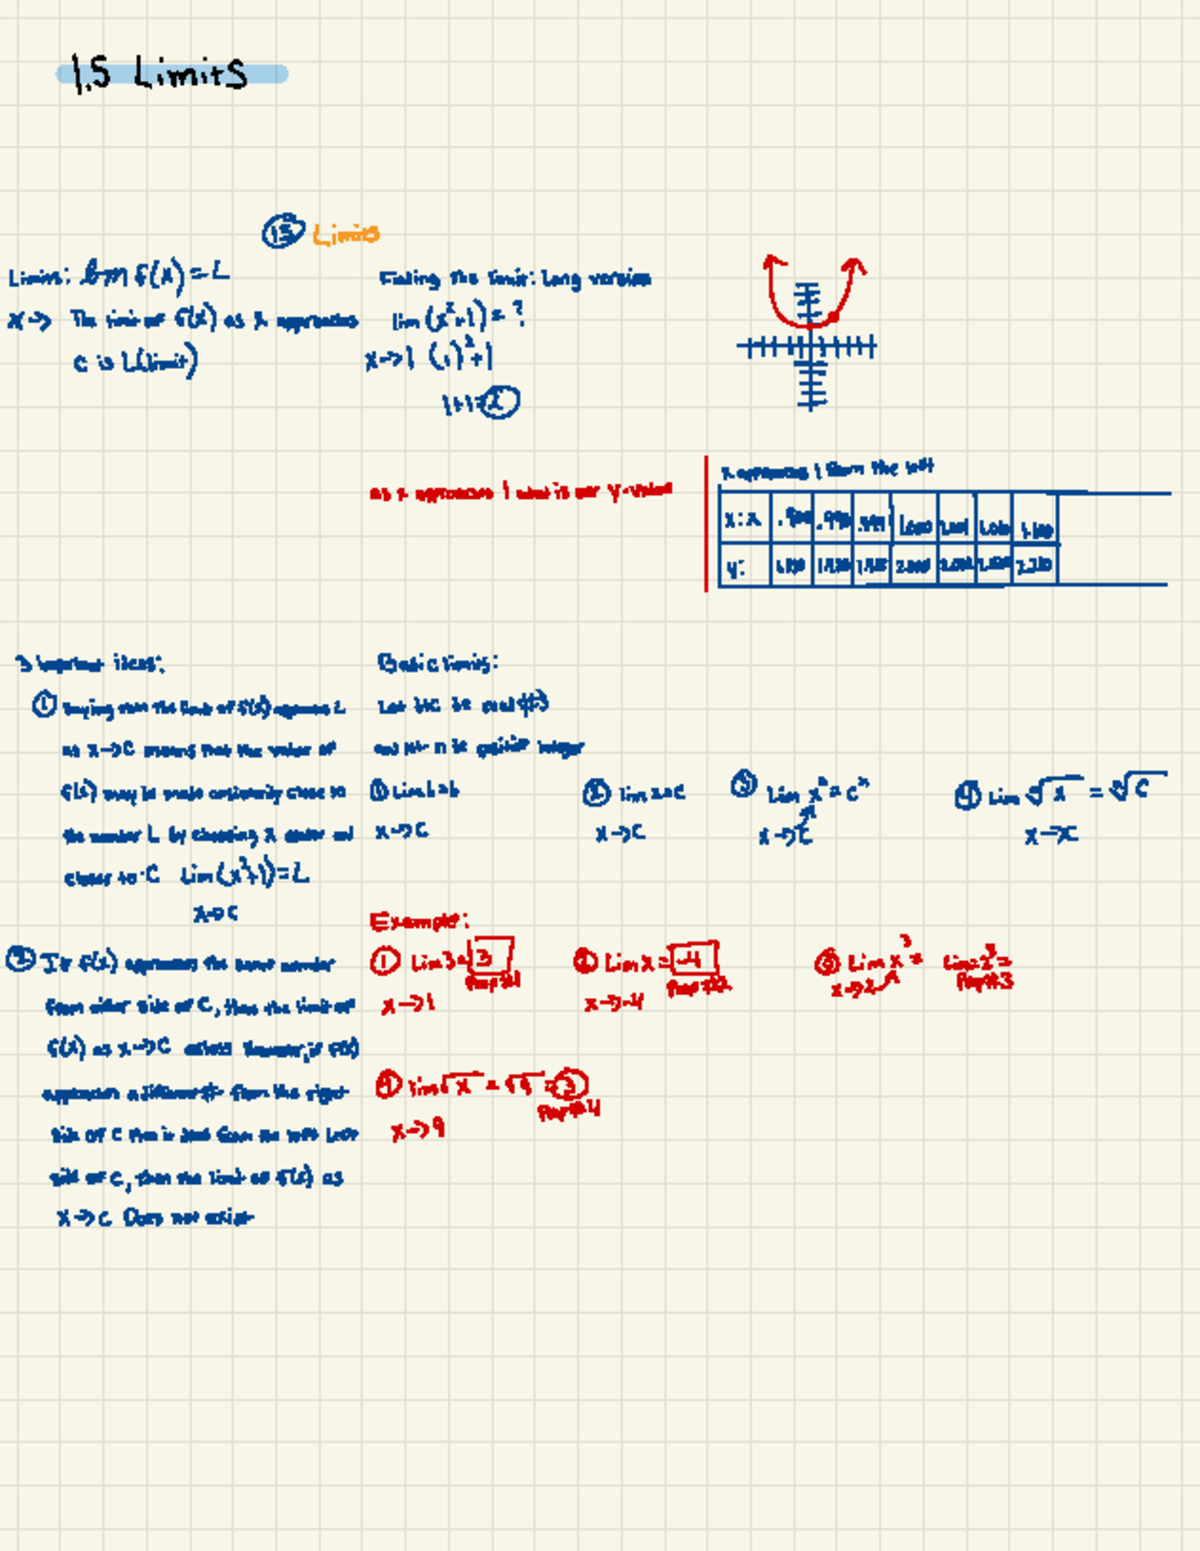 1.5 Limits
1.5 Limits
Limits: lim f(x) = L
x→ The limit of f(x) as x approaches
C is L (limit)
Finding the limit: Long version
lim (x²+1) = ?
x→1 (1)²+1
1+1=2
as x approaches 1 what is our y-value
x approaches 1 from the left
x: .990 1.000
y: 2.000
3 Important ideas:
① Saying that the limit of f(x) approaches L
as x→C means that the value of
f(x) may be made arbitrarily close to
the number L by choosing x closer and
closer to C lim (x²+1) = L
x→C
② If f(x) approaches the same number
from either side of C, then the limit of
f(x) as x→C exists. However, if f(x)
approaches a different # from the right
side of C than it does from the left
side of C, then the limit of f(x) as
x→C Does not exist
Basic limits:
Let b&C be real #s
and let n be positive integer
① Lim b = b
x→C
② lim x = c
x→C
③ Lim xⁿ = cⁿ
x→C
④ Lim ⁿ√x = ⁿ√C
x→C
Example:
① Lim 3 = 3
x→1 Prop #1
② Lim x = -4
x→-4 Prop #2
③ Lim x³ = Lim 2³ =
x→2 Prop #3
④ lim √x = √9 = 3
x→9 Prop #4